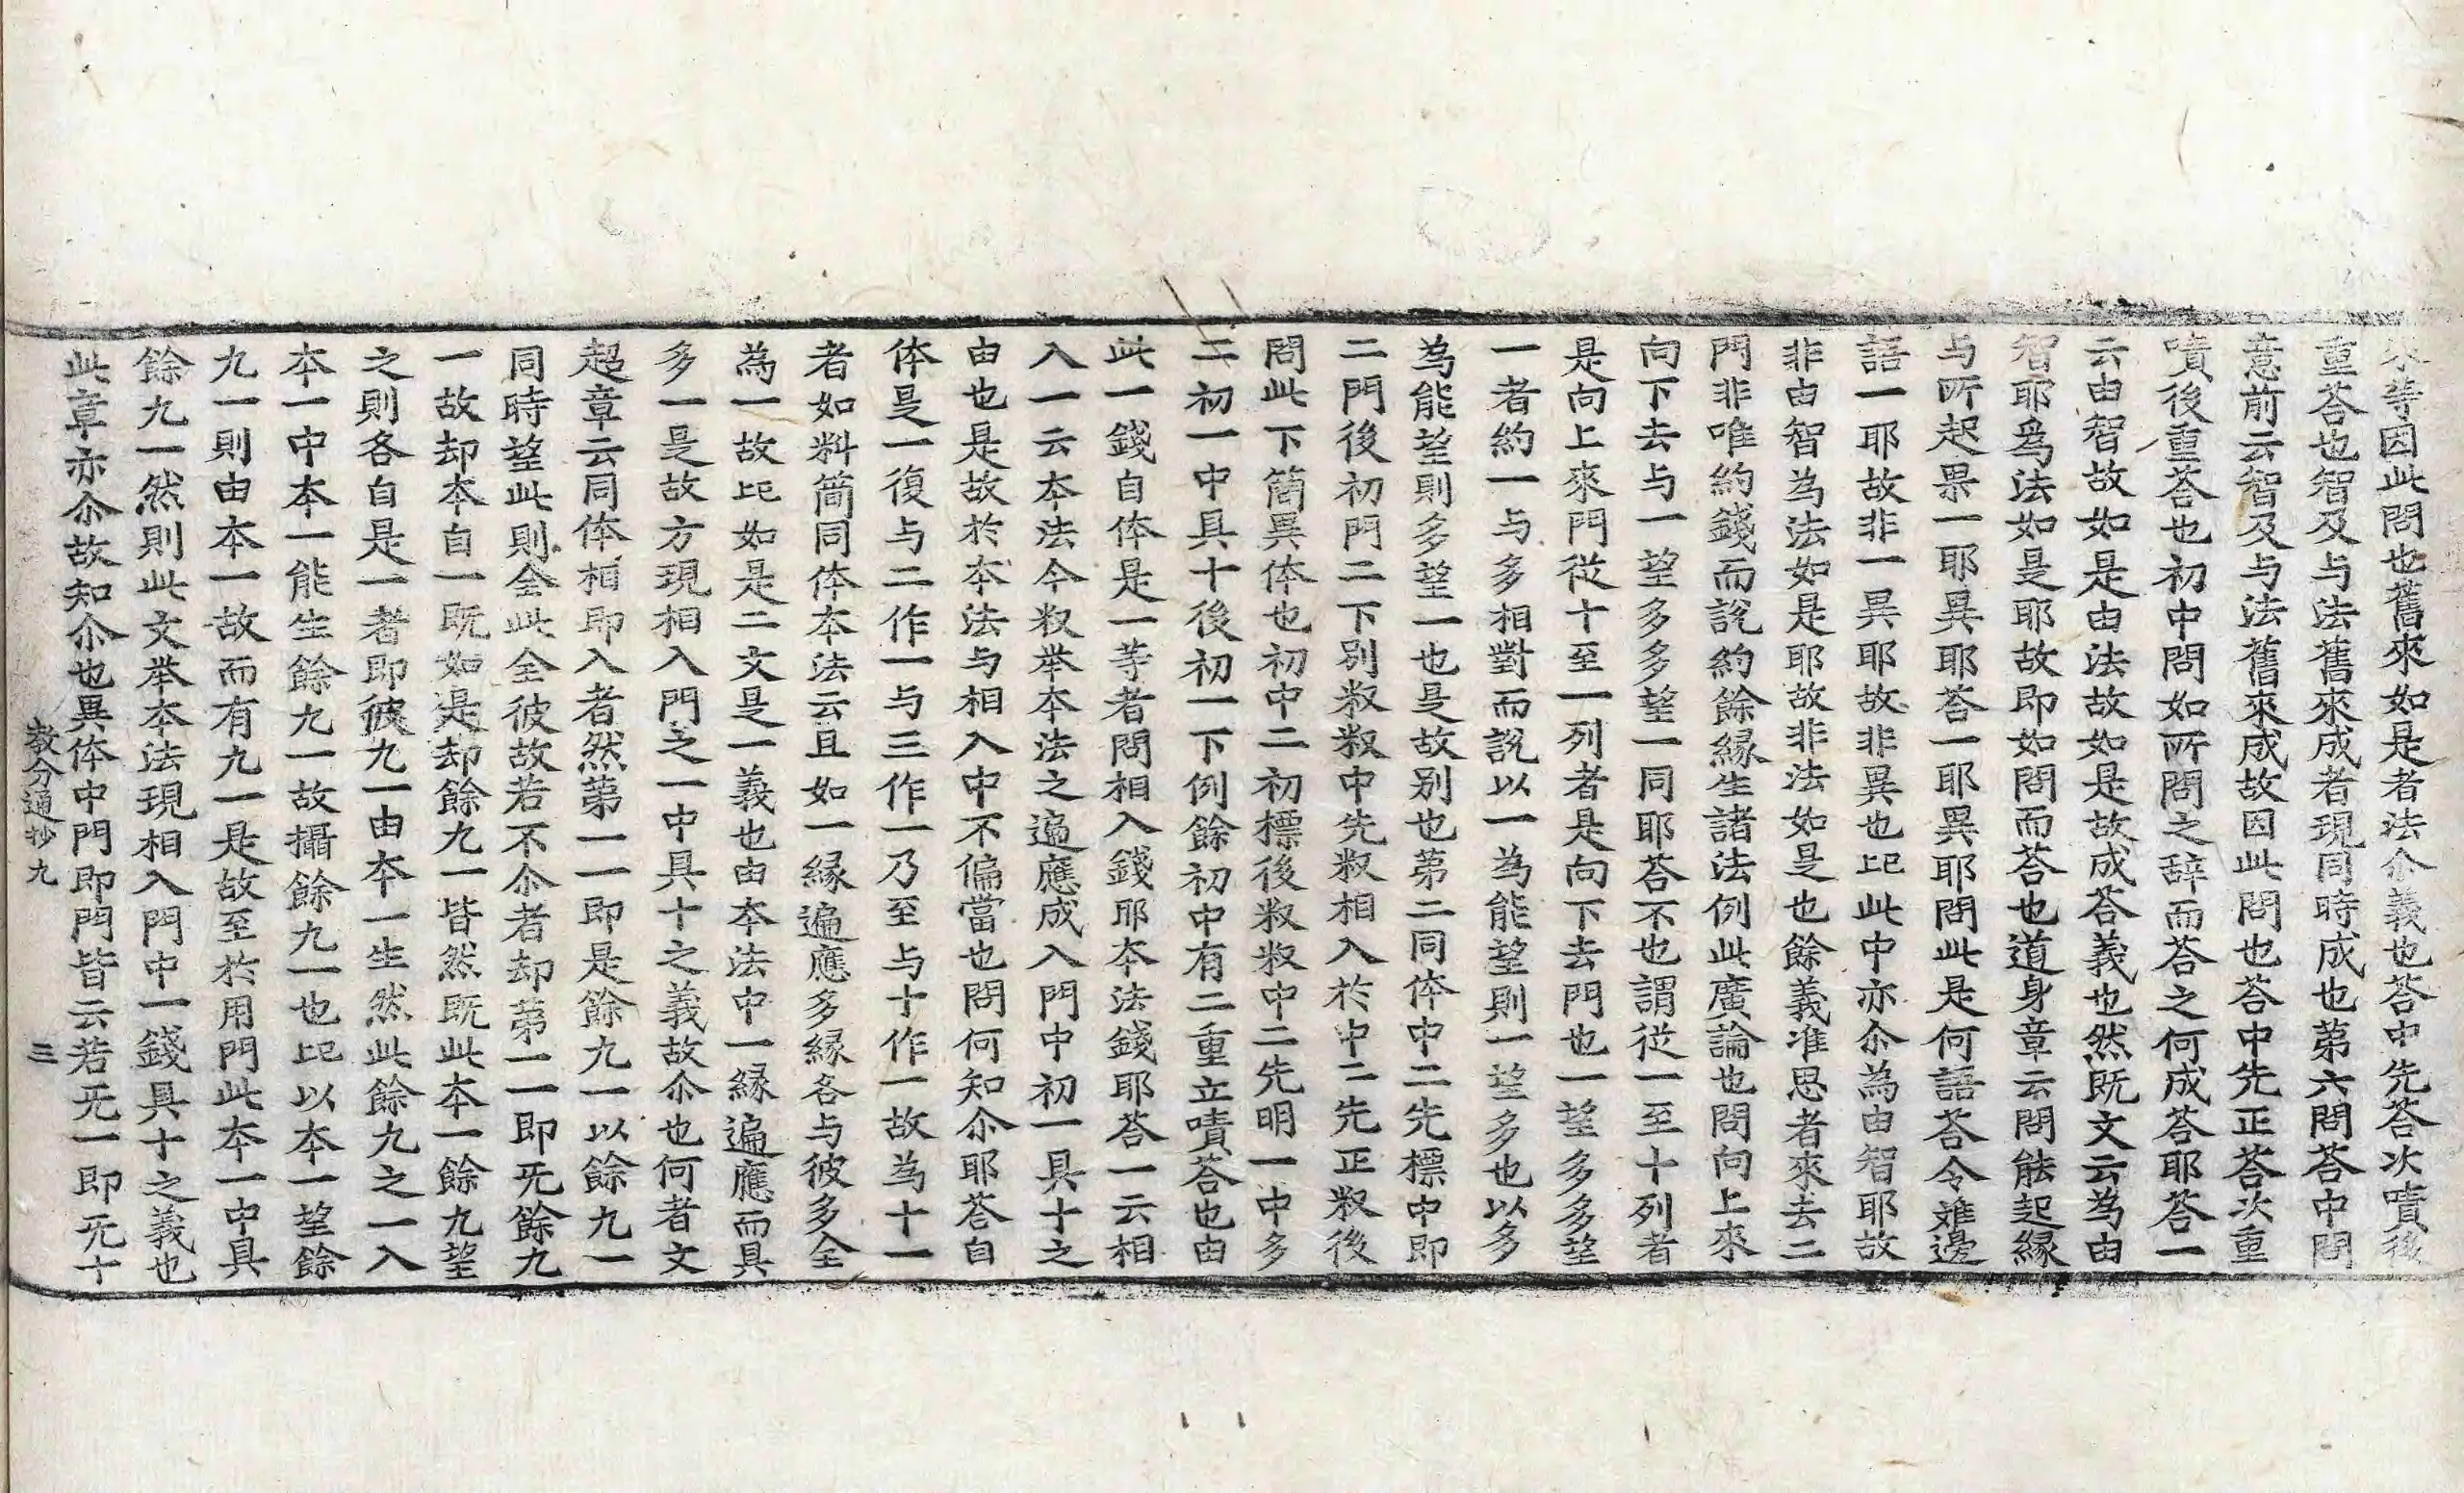 來等因此問也舊來如是者法尒義也荅中先荅次嘖後
重荅也智及与法舊來成者現同時成也第六問荅中問
意前云智及与法舊來成故因此問也荅中先正荅次重
嘖後重荅也初中問如所問之辞而荅之何成荅耶荅一
云由智故如是由法故如是故成荅義也然既文云為由
智耶爲法如是耶故即如問而荅也道身章云問能起縁
与所起果一耶異耶荅一耶異耶問此是何語荅令難邊
語一耶故非一異耶故非異也記此中亦尒為由智耶故
非由智為法如是耶故非法如是也餘義准思者來去二
門非唯約錢而說約餘縁生諸法例此廣論也問向上來
向下去与一望多多望一同耶荅不也謂從一至十列者
是向上來門從十至一列者是向下去門也一望多多望
一者約一与多相對而說以一為能望則一望多也以多
為能望則多望一也是故別也第二同体中二先標中即
二門後初門二下別㪽㪽中先㪽相入於中二先正㪽後
問此下簡異体也初中二初標後㪽㪽中二先明一中多
二初一中具十後初一下例餘初中有二重立嘖荅也由
此一錢自体是一等者問相入錢耶本法錢耶荅一云相
入一云本法今㪽举本法之遍應成入門中初一具十之
由也是故於本法与相入中不偏當也問何知尒耶荅自
体是一復与二作一与三作一乃至与十作一故為十一
者如料簡同体本法云且如一縁遍應多縁各与彼多全
為一故記如是二文是一義也由本法中一縁遍應而具
多一是故方現相入門之一中具十之義故尒也何者文
超章云同体相即入者然第一一即是餘九一以餘九一
同時望此則全此全彼故若不尒者却第一一即旡餘九
一故却本自一既如是却餘九一皆然既此本一餘九望
之則各自是一者即彼九一由本一生然此餘九之一入
本一中本一能生餘九一故攝餘九一也記以本一望餘
九一則由本一故而有九一是故至於用門此本一中具
餘九一然則此文举本法現相入門中一錢具十之義也
此章亦尒故知尒也異体中門即門皆云若旡一即旡十
教分通抄九　三